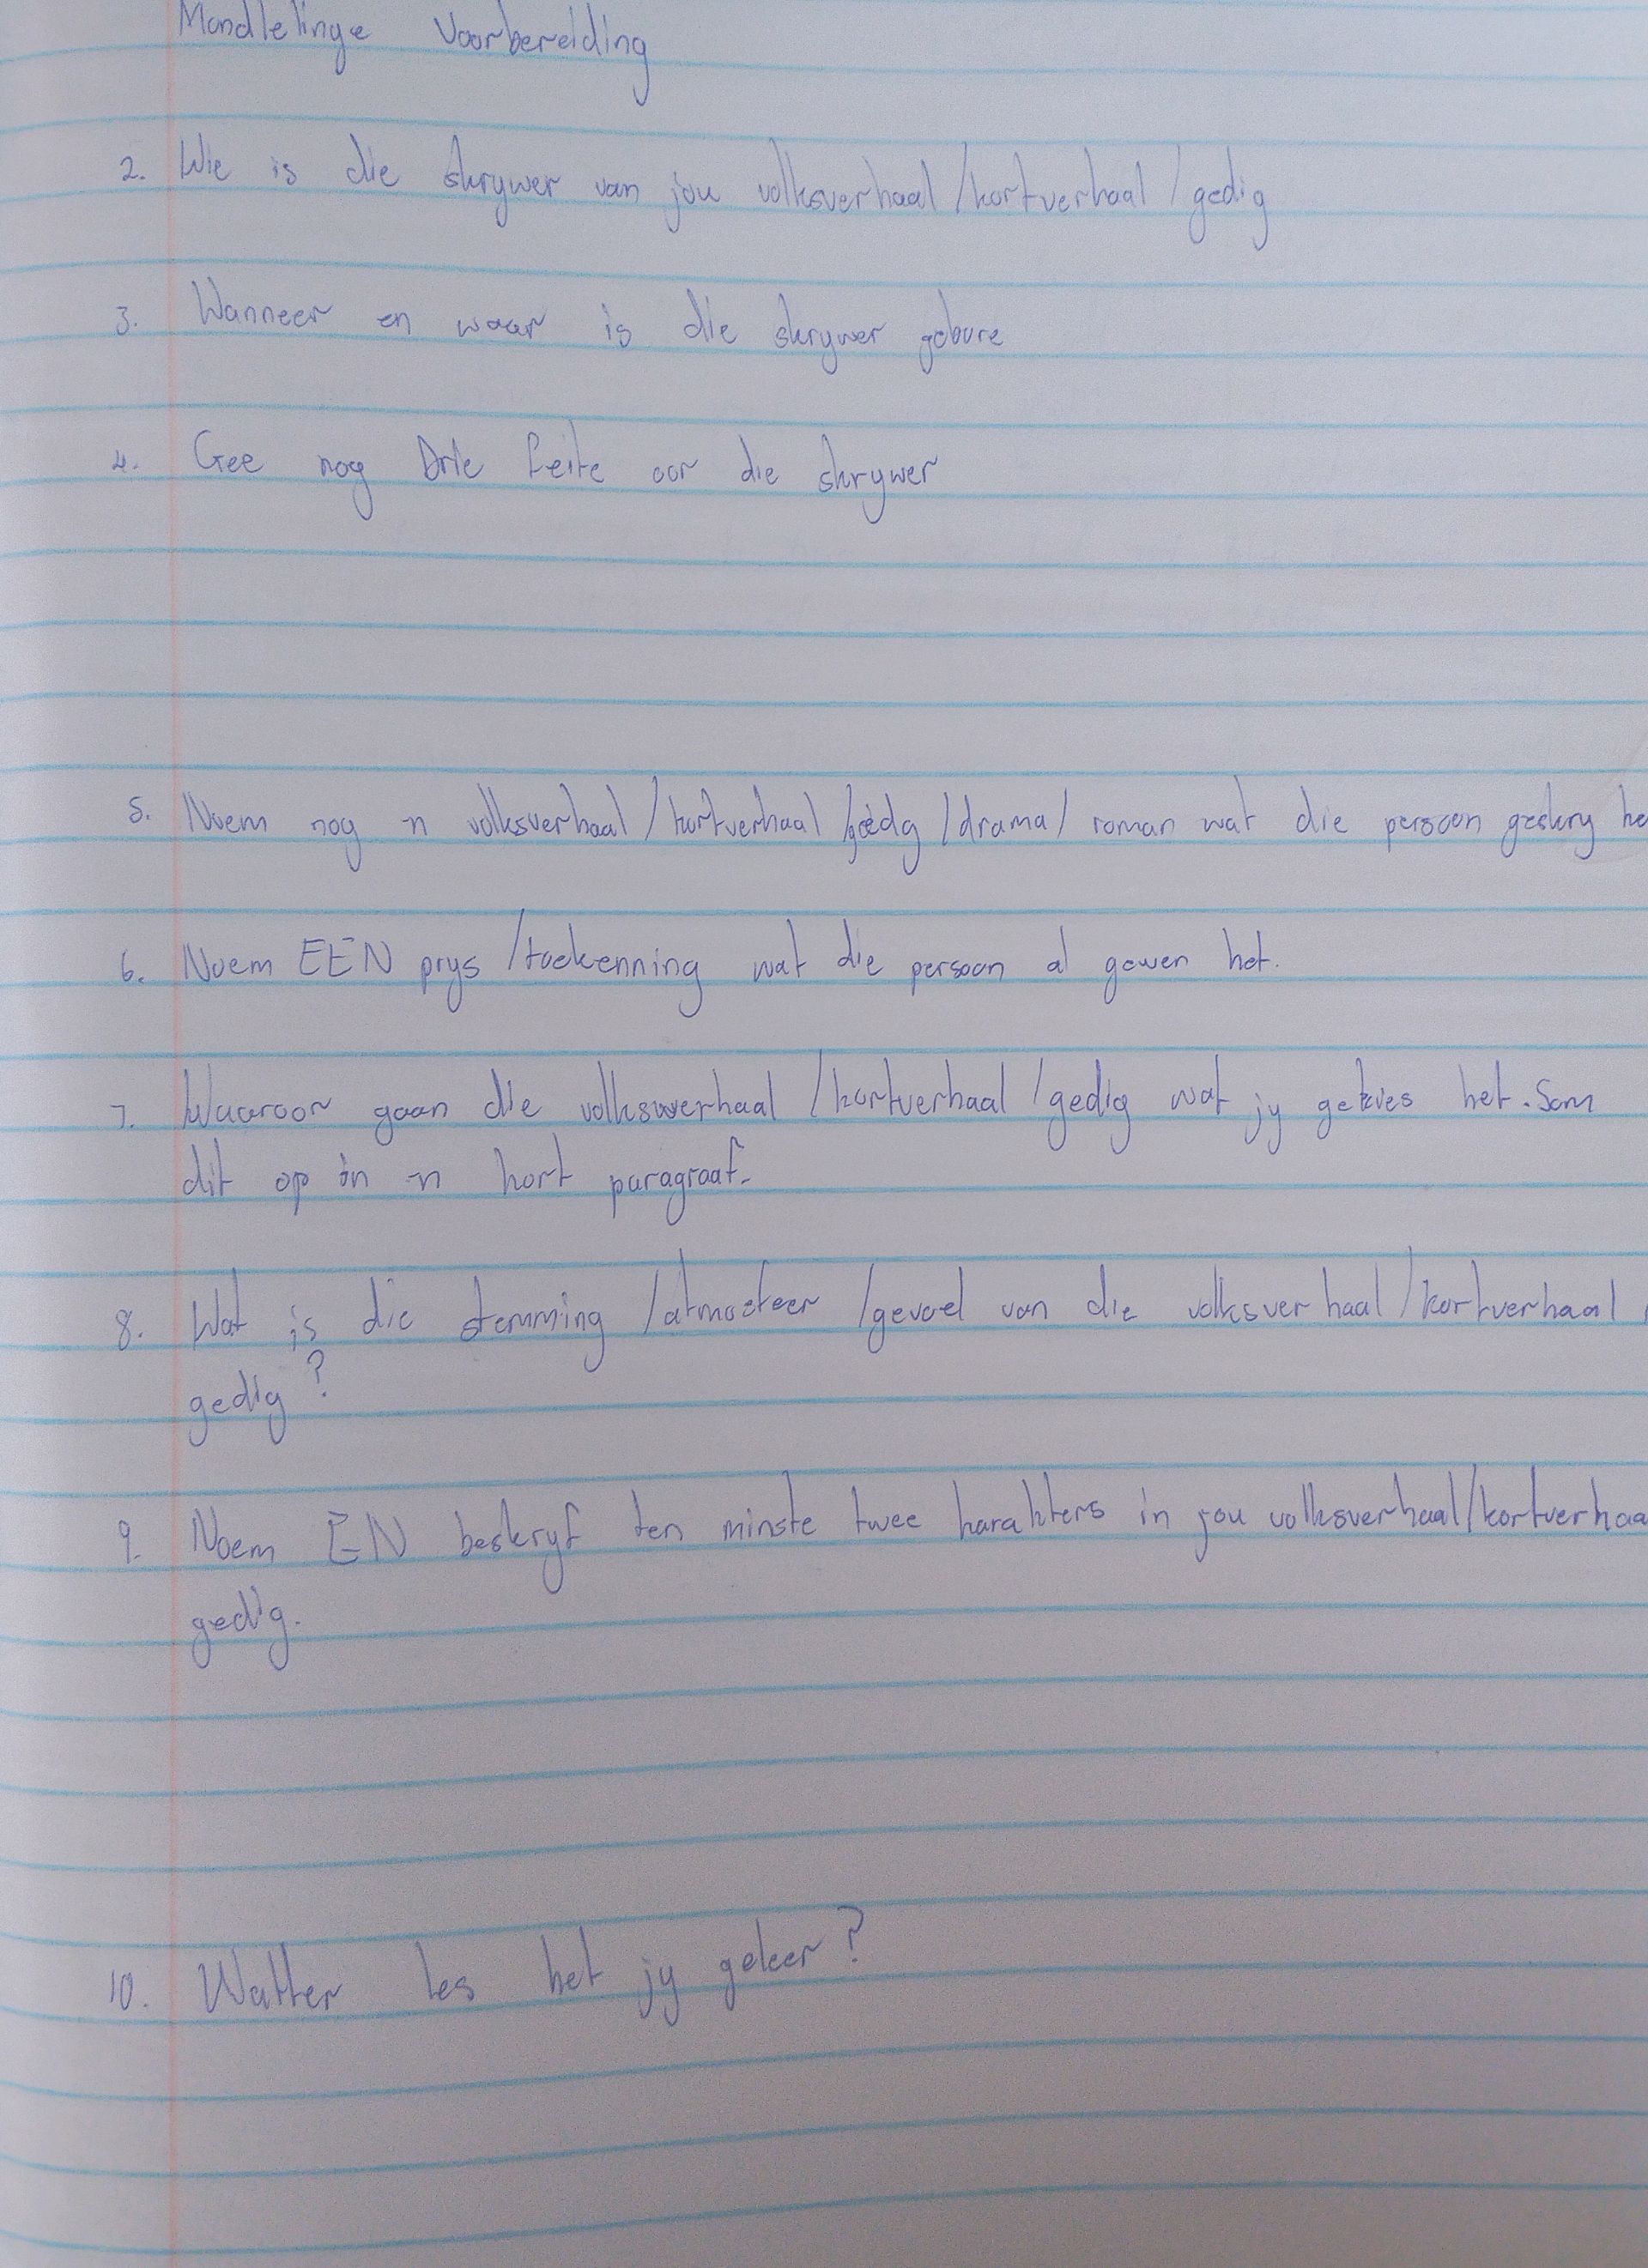 Mondlelinge Voorbereiding
2. Wie is die skrywer van jou volksverhaal/kortverhaal/gedig
3. Wanneer en waar is die skrywer gebore
4. Gee nog Drie feite oor die skrywer
5. Noem nog 'n volksverhaal/kortverhaal/gedig/drama/roman wat die persoon geskry he
6. Noem EEN prys/toekenning wat die persoon al gewen het.
7. Waaroor gaan die volksverhaal/kortverhaal/gedig wat jy gekies het. Som
dit op in 'n kort paragraaf.
8. Wat is die stemming/atmosfeer/gevoel van die volksverhaal/kortverhaal
gedig?
9. Noem EN beskryf ten minste twee karakters in jou volksverhaal/kortverhaa
gedig.
10. Watter les het jy geleer?